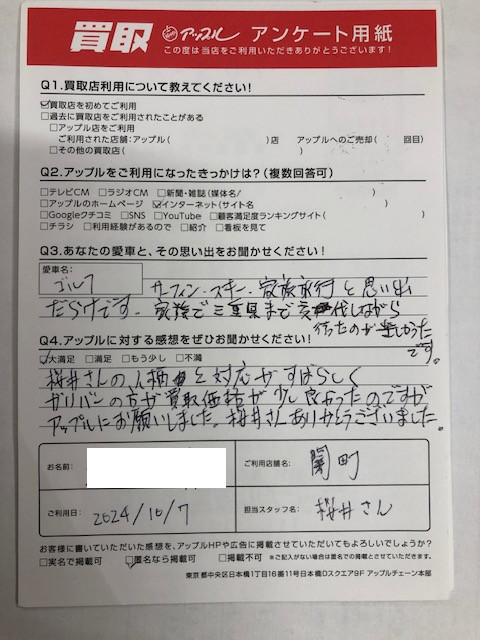 買取 アップル アンケート用紙
この度は当店をご利用いただきありがとうございます！
Q1.買取店利用について教えてください！
☑買取店を初めてご利用
□過去に買取店をご利用されたことがある
□アップル店をご利用
ご利用された店舗:アップル( )店 アップルへのご売却( 回目)
□その他の買取店( )
Q2.アップルをご利用になったきっかけは？(複数回答可)
□テレビCM □ラジオCM □新聞・雑誌(媒体名/ )
□アップルのホームページ ☑インターネット(サイト名 )
□Googleクチコミ □SNS □YouTube □顧客満足度ランキングサイト( )
□チラシ □利用経験があるので □紹介 □看板を見て
Q3.あなたの愛車と、その思い出をお聞かせください！
愛車名:
ゴルフ
サーフィン・スキー・家族旅行と思い出
だらけです。家族で三重県まで交代しながら
行ったのが楽しかった
です。
Q4.アップルに対する感想をぜひお聞かせください！
☑大満足 □満足 □もう少し □不満
桜井さんの人柄と対応がすばらしく
ガリバーの方が買取価格が少し良かったのですが
アップルにお願いしました。桜井さんありがとうございました。
お名前:
ご利用店舗名:
関町
ご利用日:
2024/10/7
担当スタッフ名:
桜井さん
お客様に書いていただいた感想を、アップルHPや広告に掲載させていただいてもよろしいでしょうか？
□実名で掲載可 ☑匿名なら掲載可 □掲載不可 ※ご記入がない場合は匿名での掲載とさせていただきます。
東京都中央区日本橋1丁目16番11号日本橋Dスクエア9F アップルチェーン本部